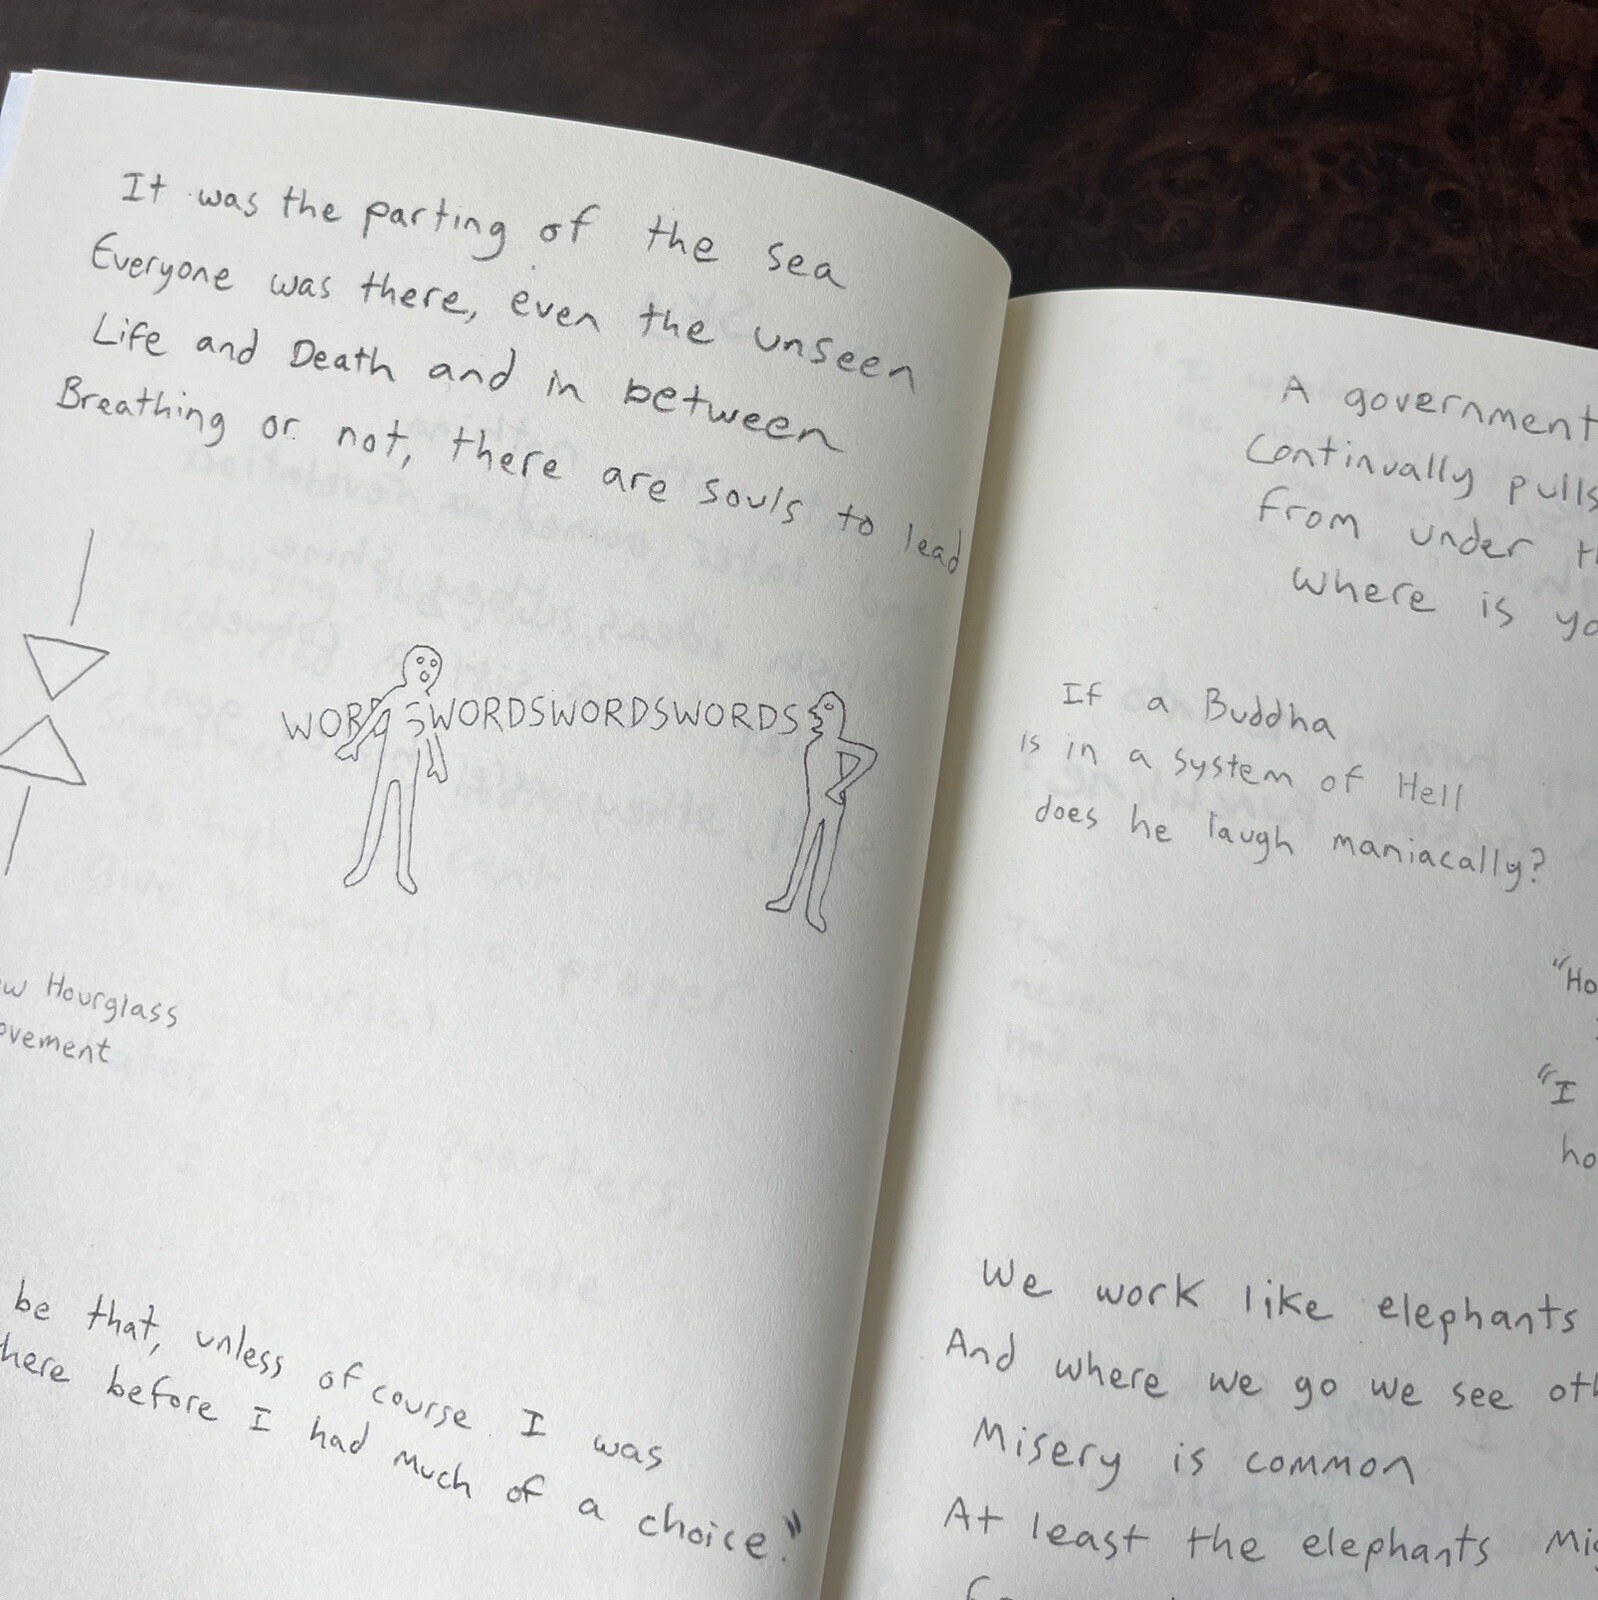 It was the parting of the sea
Everyone was there, even the unseen
Life and Death and in between
Breathing or not, there are souls to lead
WORDSWORDSWORDSWORDS
Hourglass
be that, unless of course I was
before I had much of a choice."
A government
continually pulls
from under
where is
If a Buddha
is in a system of Hell
does he laugh maniacally?
"I
We work like elephants
And where we go we see
Misery is common
At least the elephants